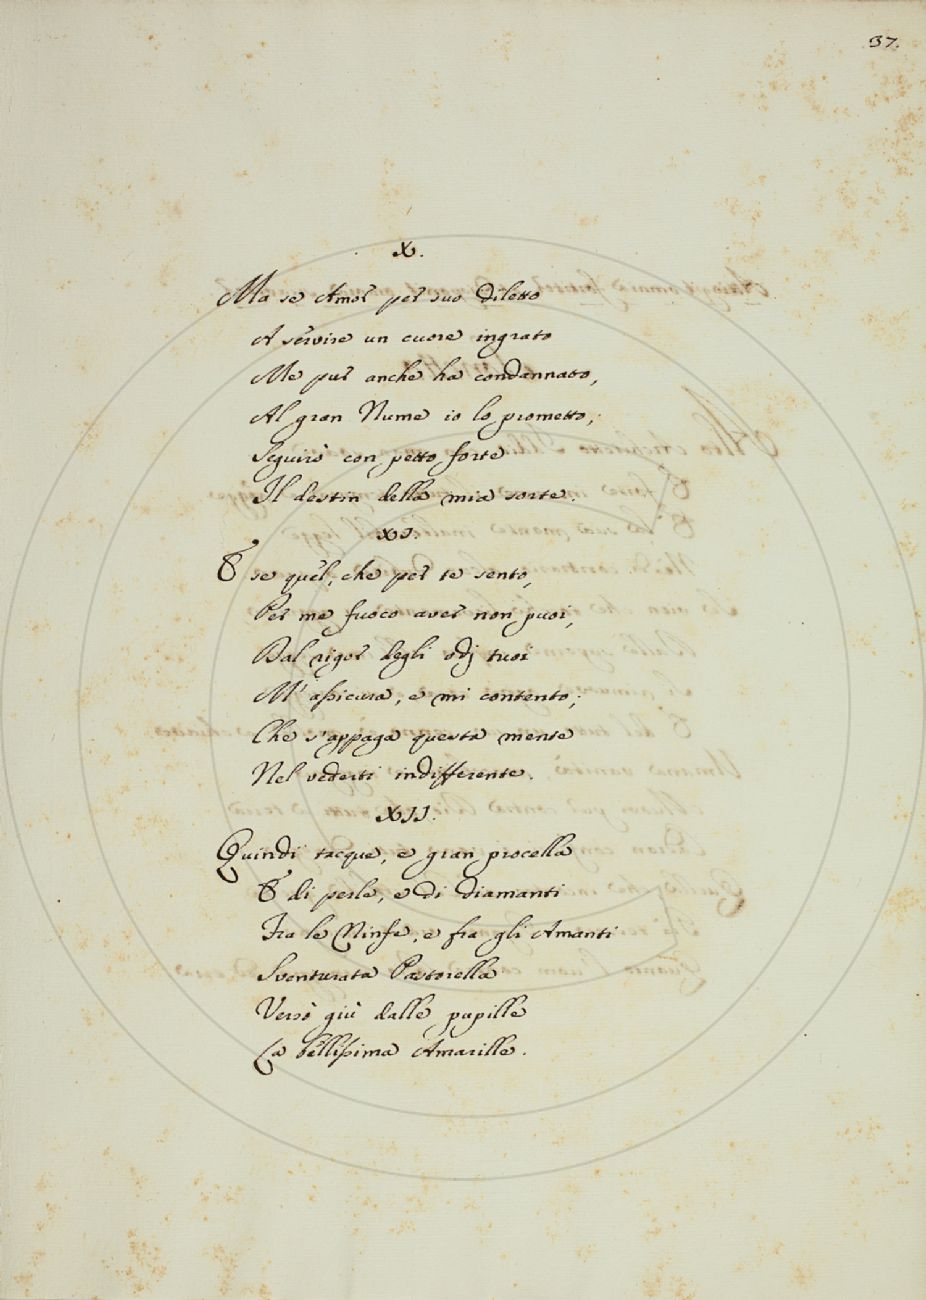 37.
X.
Ma se Amor per suo diletto
A servire un cuore ingrato
Me pur anche ha condannato,
Al gran Nume io lo prometto;
Seguirò con petto forte
Il destin della mia sorte
XI.
E se quel, che per te sento,
Per me fuoco aver non puoi,
Dal rigor degli odj tuoi
M'assicura, e mi contento;
Che s'appaga questa mente
Nel vederti indifferente.
XII.
Quindi tacque, e gran procella
E di perle, e di diamanti
Fra le Ninfe, e fra gli Amanti
Sventurata Pastorella
Versò giù dalle pupille
La bellissima Amarille.